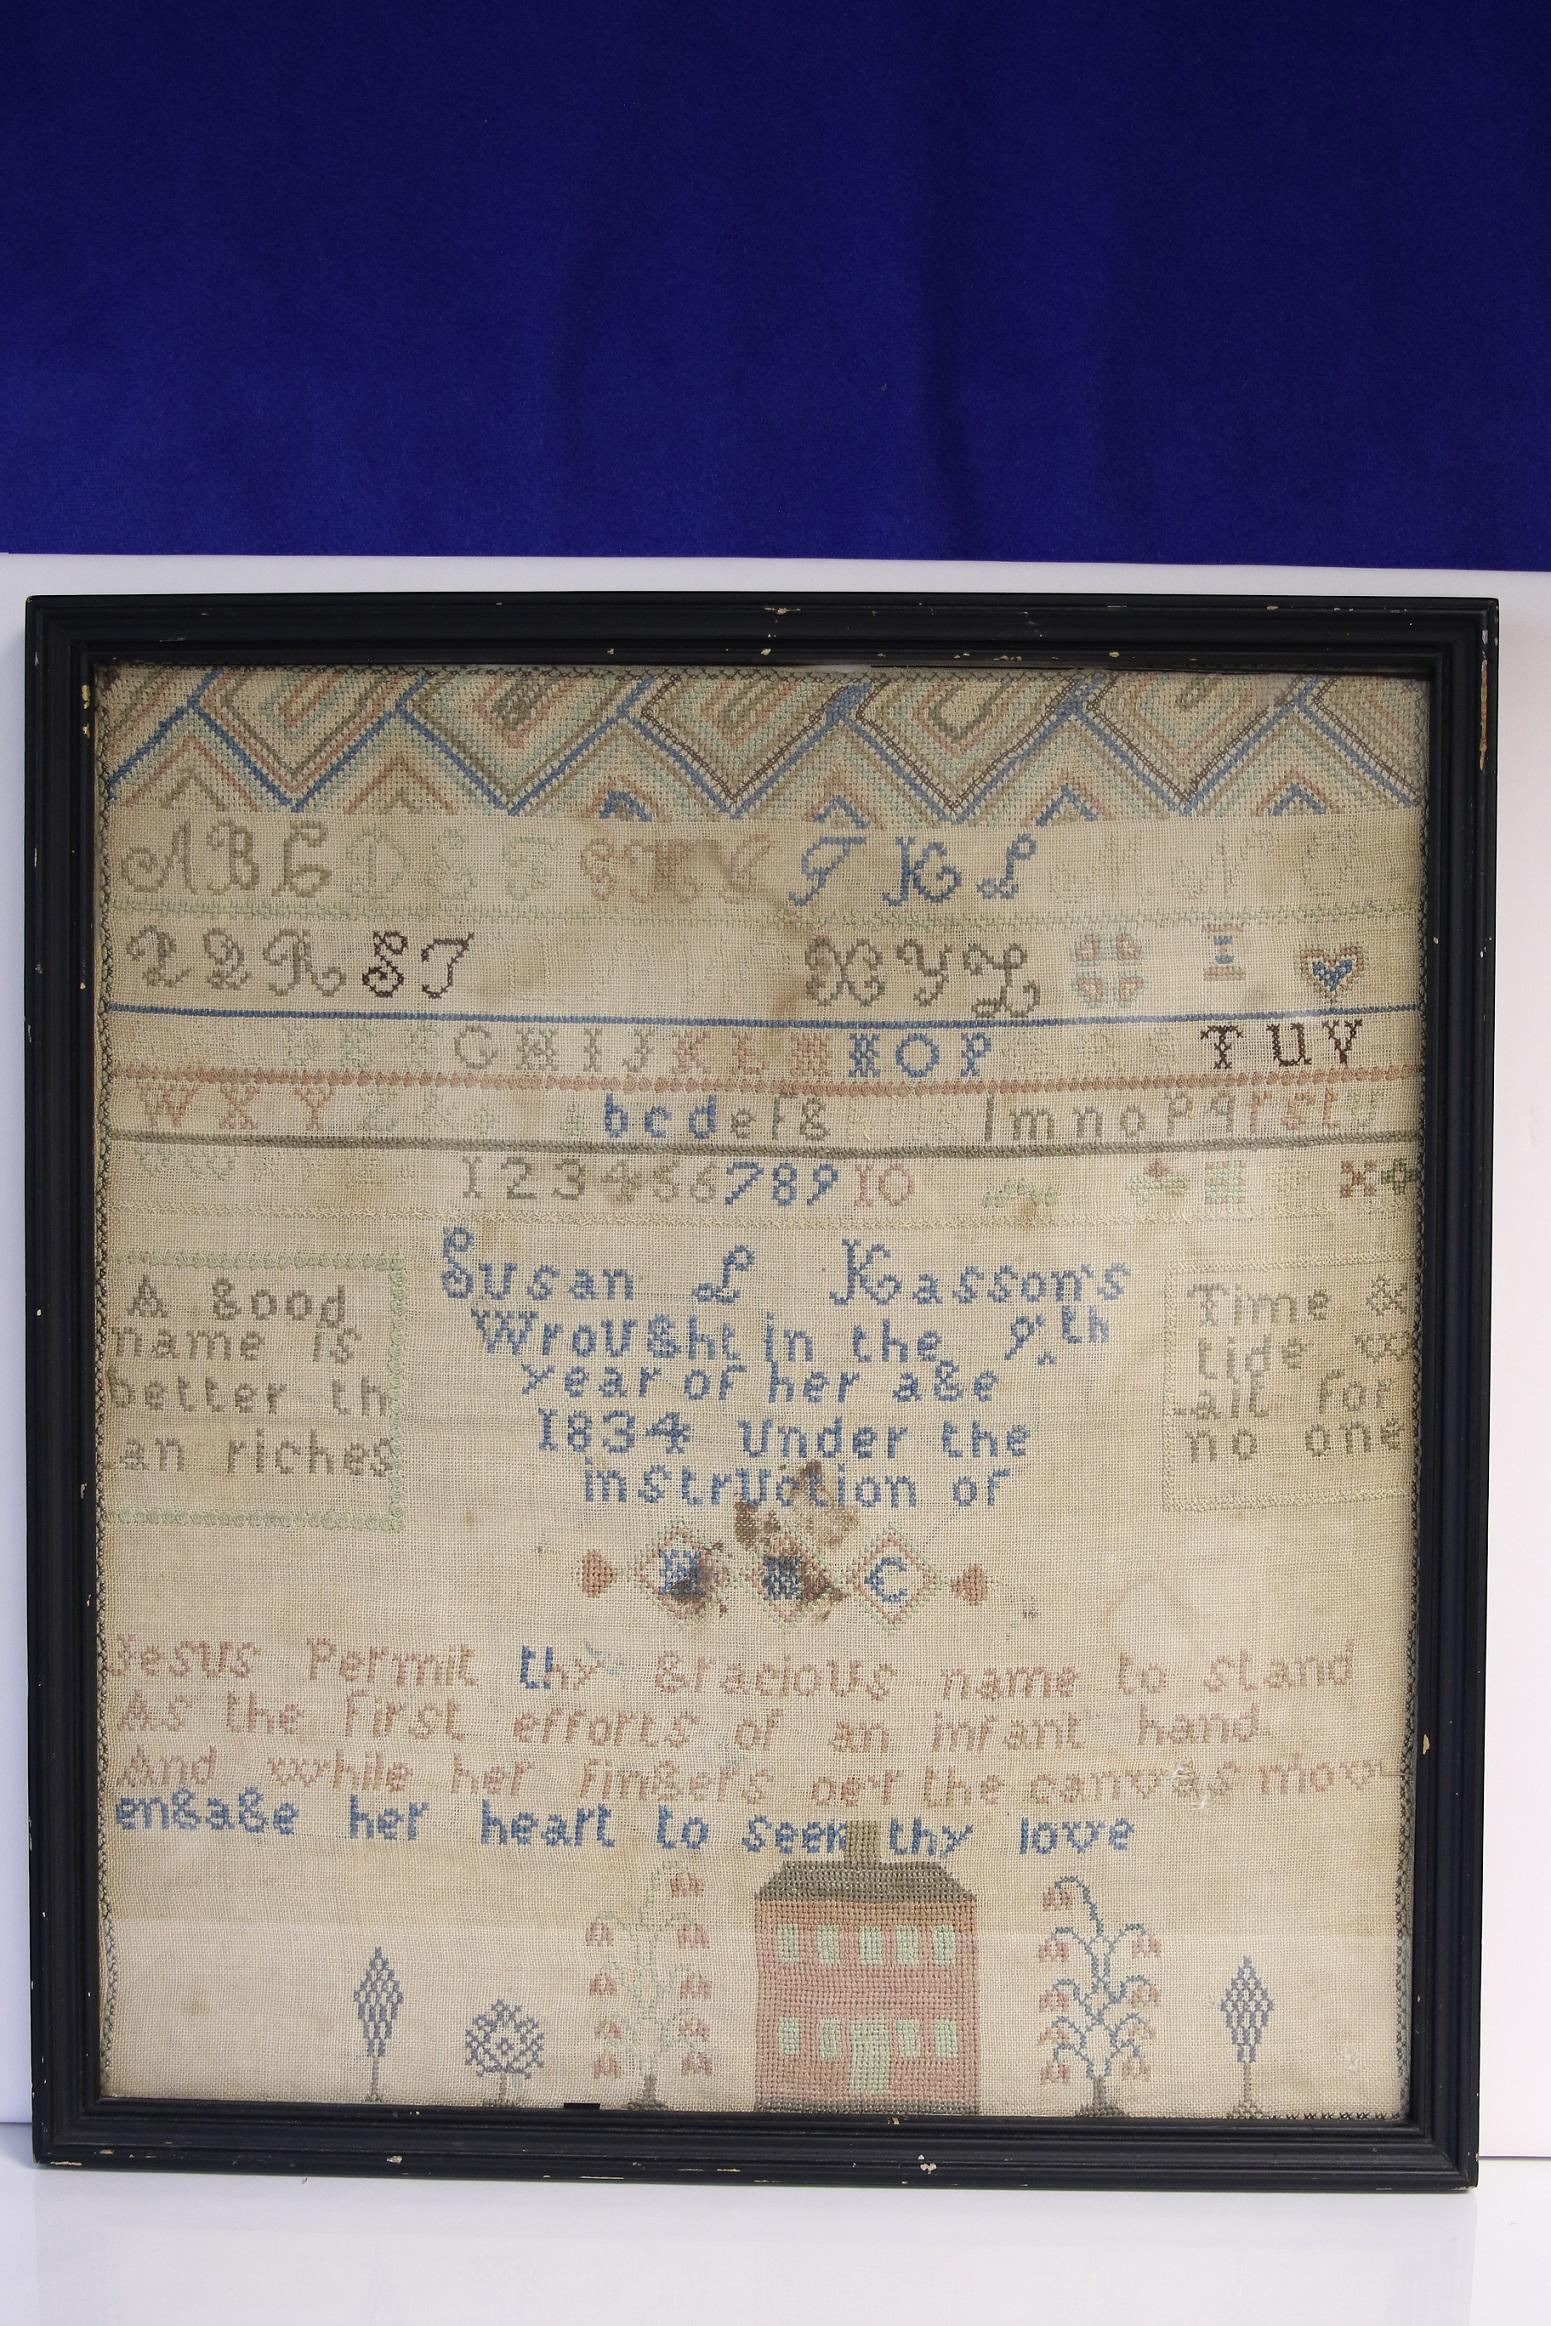 A B C D E F G H I J K L M N O
P Q R S T X Y Z
D E F G H I J K L M N O P Q R S T U V
W X Y Z & a b c d e f g l m n o p q r s t u
v w 1 2 3 4 5 6 7 8 9 10
A good
name is
better th
an riches
Susan L Kasson's
Wrought in the 9th
year of her age
1834 Under the
instruction of
C
Time &
tide w
ait for
no one
Jesus Permit thy Gracious name to stand
As the First efforts of an infant hand
And while her fingers oer the canvas move
engage her heart to seek thy love